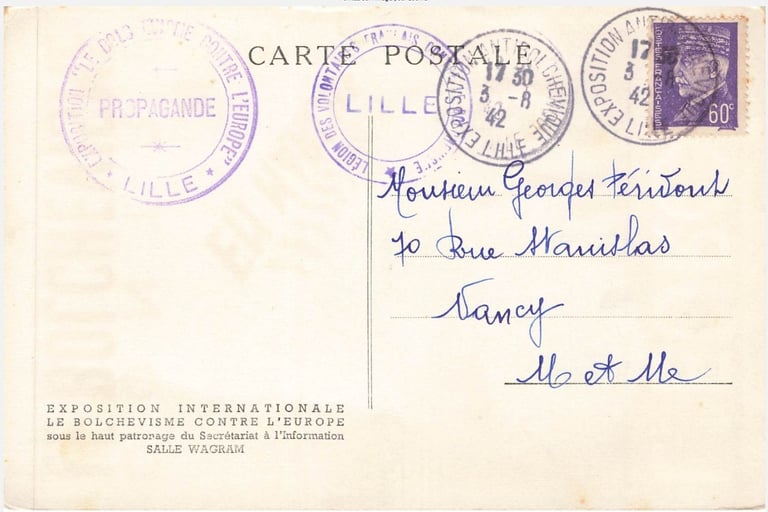 CARTE POSTALE
EXPOSITION "LE BOLCHEVISME CONTRE L'EUROPE"
PROPAGANDE
* LILLE *
LÉGION DES VOLONTAIRES FRANÇAIS
LILLE
EXPOSITION ANTIBOLCHEVIQUE
17 30
3 -8
42
LILLE
EXPOSITION ANTI
17 30
3 -8
42
LILLE
60c
Monsieur Georges Férivont
70 Rue Stanislas
Nancy
M et Me
EXPOSITION INTERNATIONALE
LE BOLCHEVISME CONTRE L'EUROPE
sous le haut patronage du Secrétariat à l'Information
SALLE WAGRAM